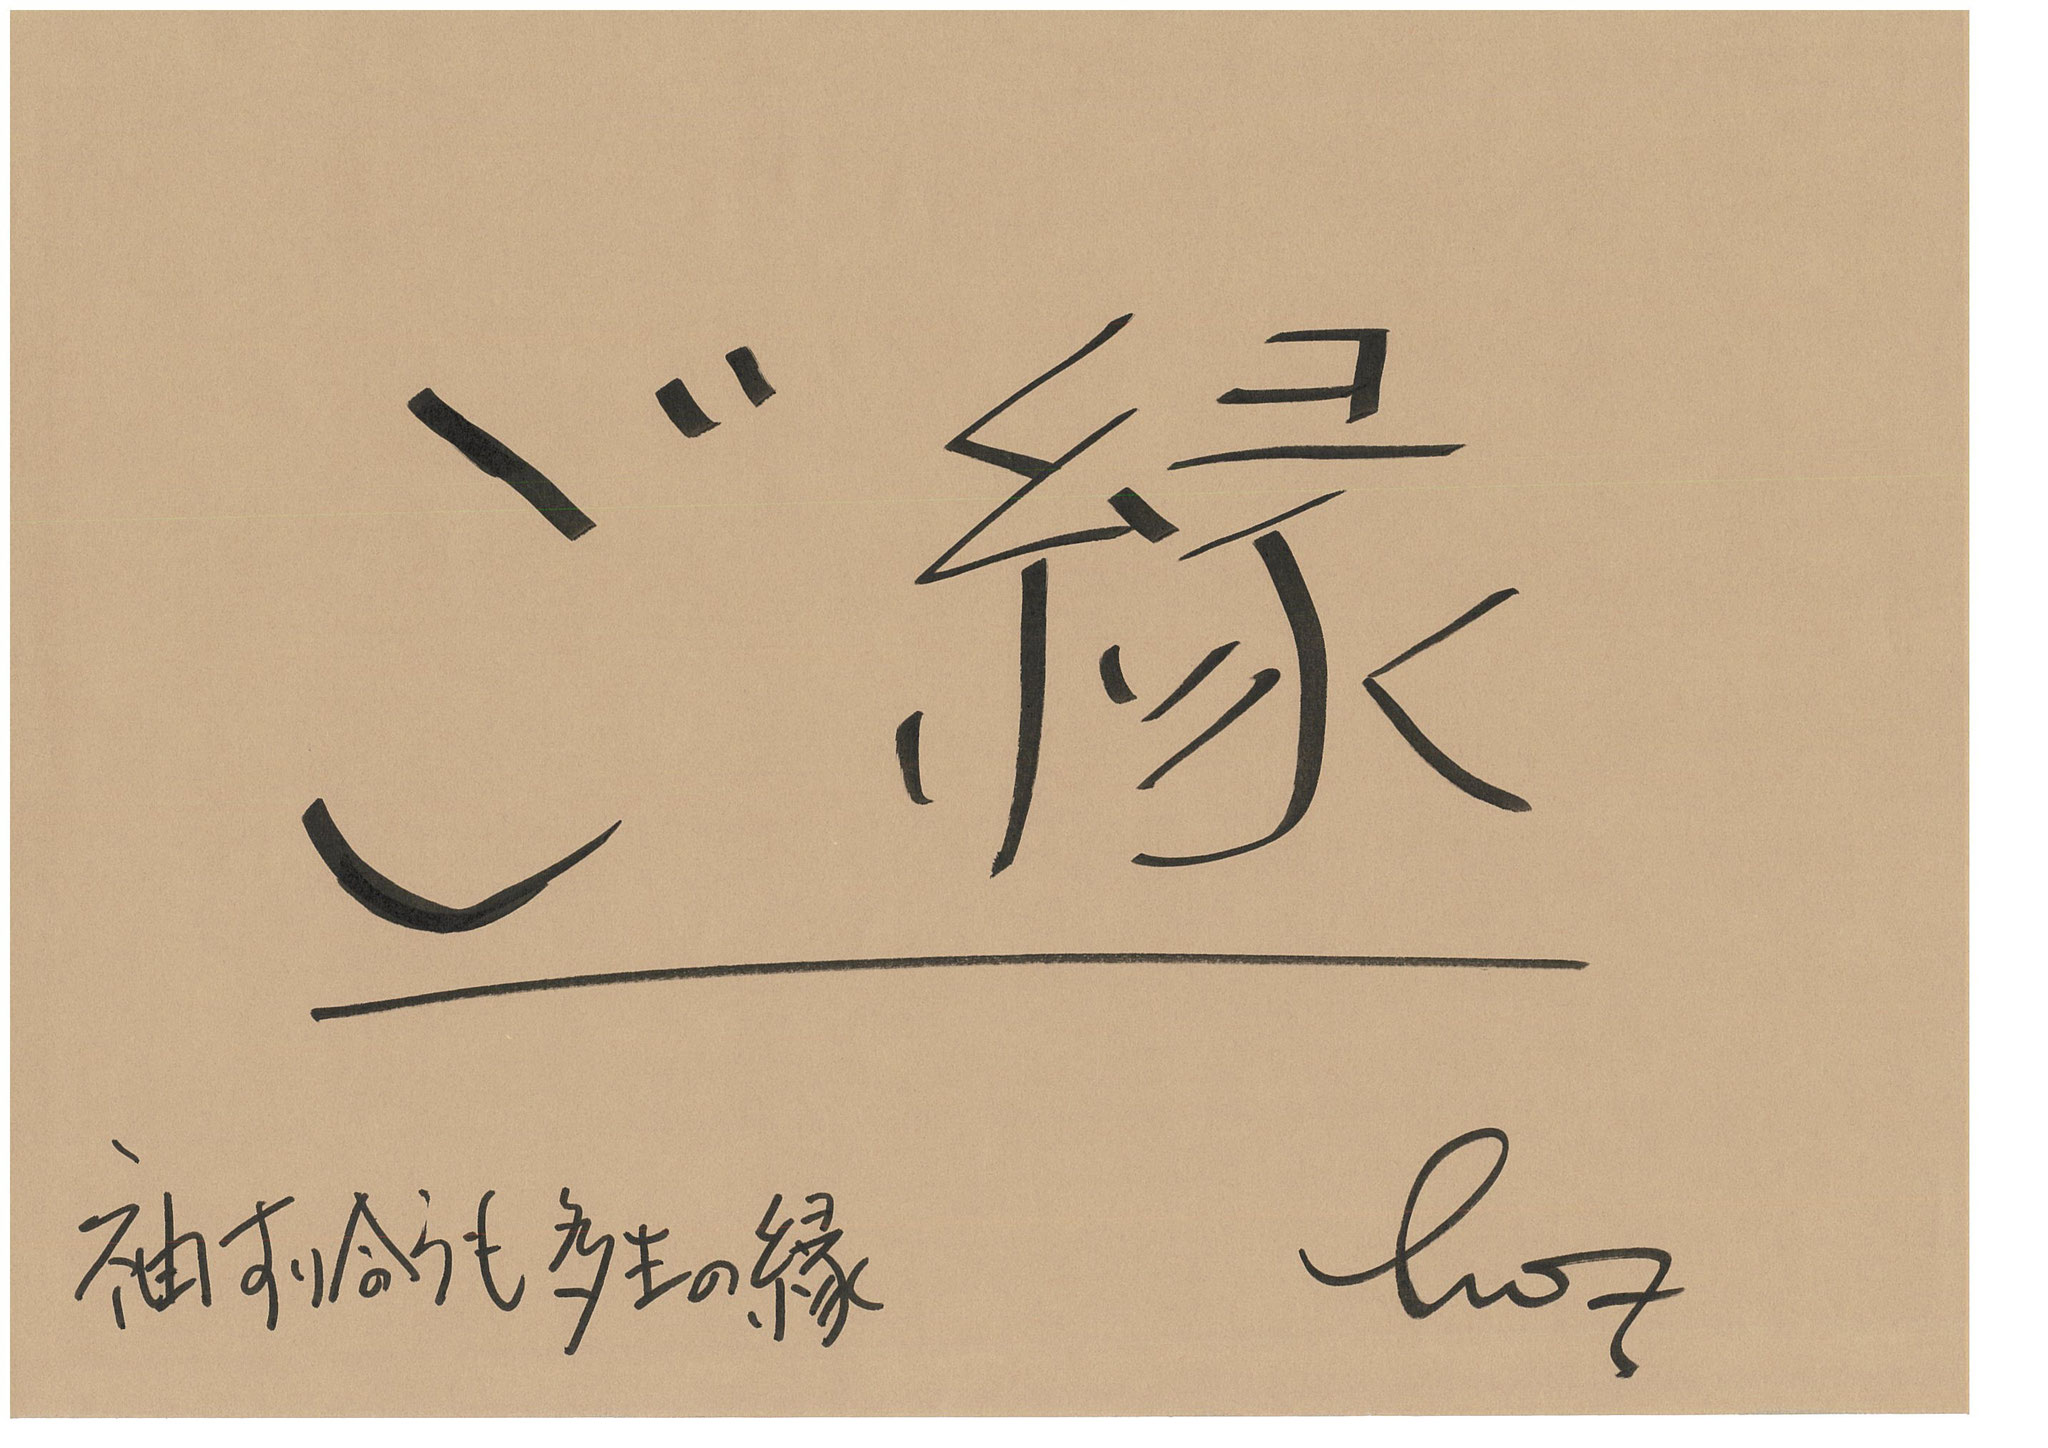 ご縁
袖すり合うも多生の縁